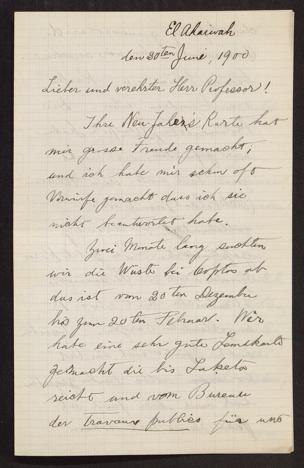 El Ahaiwah
den 30ten Juni, 1900
Lieber und verehrter Herr Professor!
Ihre Neu Jahr's Karte hat
mir grosse Freude gemacht,
und ich habe mir schon oft
Vorwürfe gemacht dass ich sie
nicht beantwortet habe.
Zwei Monate lang suchten
wir die Wüste bei Coptos ab
das ist vom 20ten Dezember
bis zum 20ten Februar. Wir
habe eine sehr gute Landkarte
gemacht die bis Laketa
reicht und vom Bureau
der travaux publics für uns